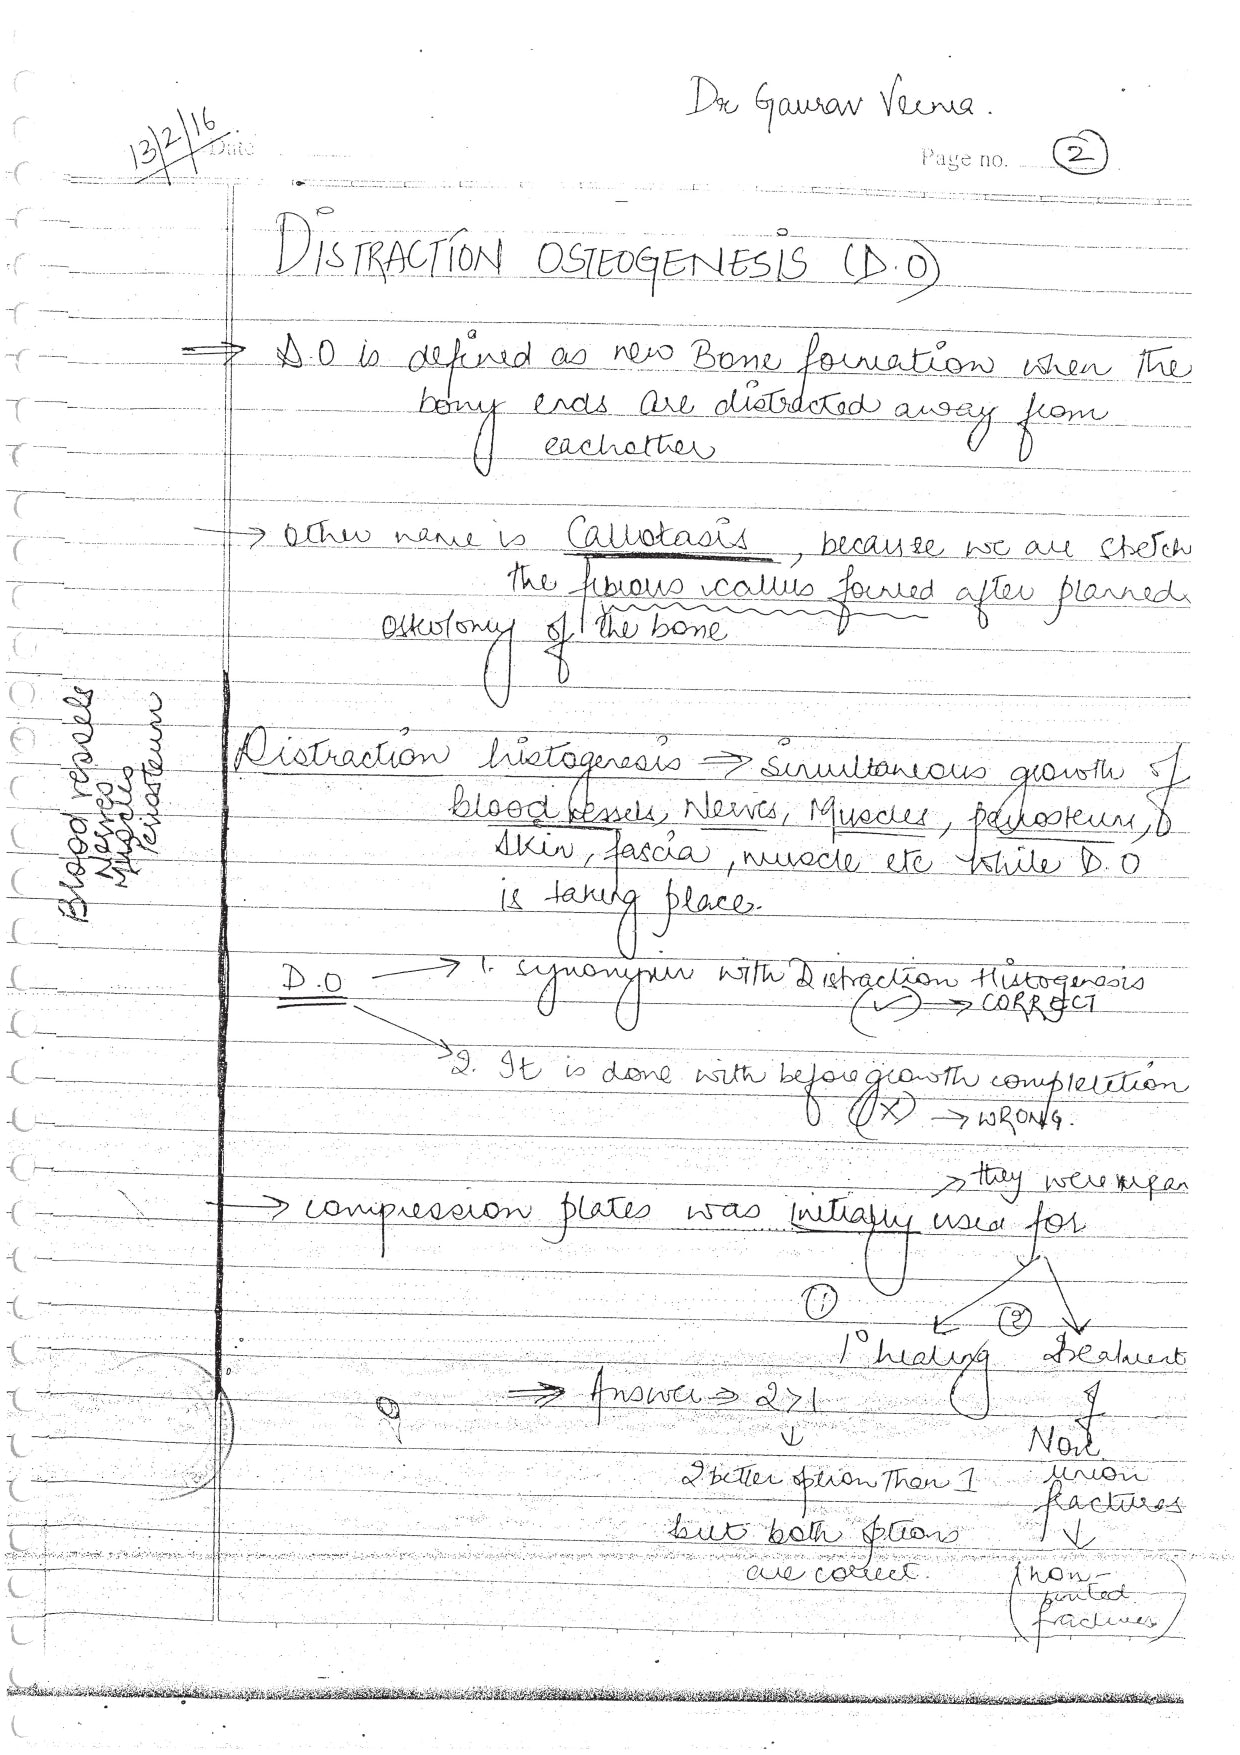 Dr Gaurav Verma.
13/2/16
Date
Page no. 2
DISTRACTION OSTEOGENESIS (D.O)
⇒ D.O is defined as new Bone formation when the
bony ends are distracted away from
eachother
→ Other name is Callotasis, because we are stretch
the fibrous callus formed after planned
osteotomy of the bone
Blood vessels
Nerves
Muscles
Periosteum
Distraction histogenesis ⇒ Simultaneous growth of
blood vessels, Nerves, Muscles, periosteum,
skin, fascia, muscle etc while D.O
is taking place.
D.O → 1. synonymn with Distraction Histogenesis
(✓) → CORRECT
→ 2. It is done with before growth completetion
(X) → WRONG.
→ they were
→ compression plates was initially used for
① ②
1° healing Treatment
⇒ Answer ⇒ 2>1
↓
of
Non
2 better option than 1 union
fractures
but both options ↓
are correct. (non-
united
fractures)